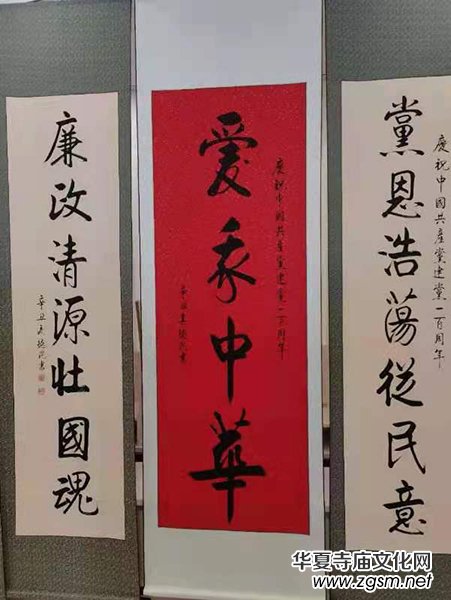 慶祝中國共產黨建黨一百周年
黨恩浩蕩從民意
慶祝中國共產黨建黨一百周年
愛我中華
辛丑 書
廉政清源壯國魂
辛丑 書
华夏寺庙文化网
www.zgsm.net